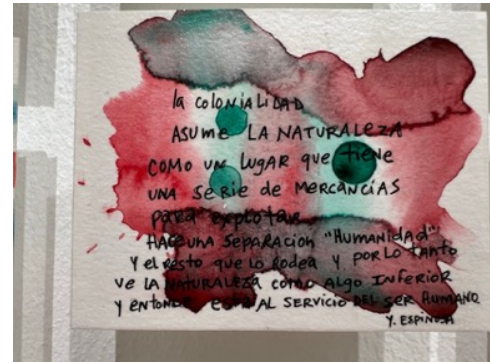 la COLONIALIDAD
ASUME LA NATURALEZA
COMO UN LUGAR que tiene
UNA SERIE de MERCANCÍAS
para explotar
HACE UNA SEPARACIÓN "HUMANIDAD"
Y el RESTO que lo Rodea y por lo tanto
ve la NATURALEZA como ALGO INFERIOR
y entonces está AL SERVICIO DEL SER HUMANO
Y. ESPINOSA